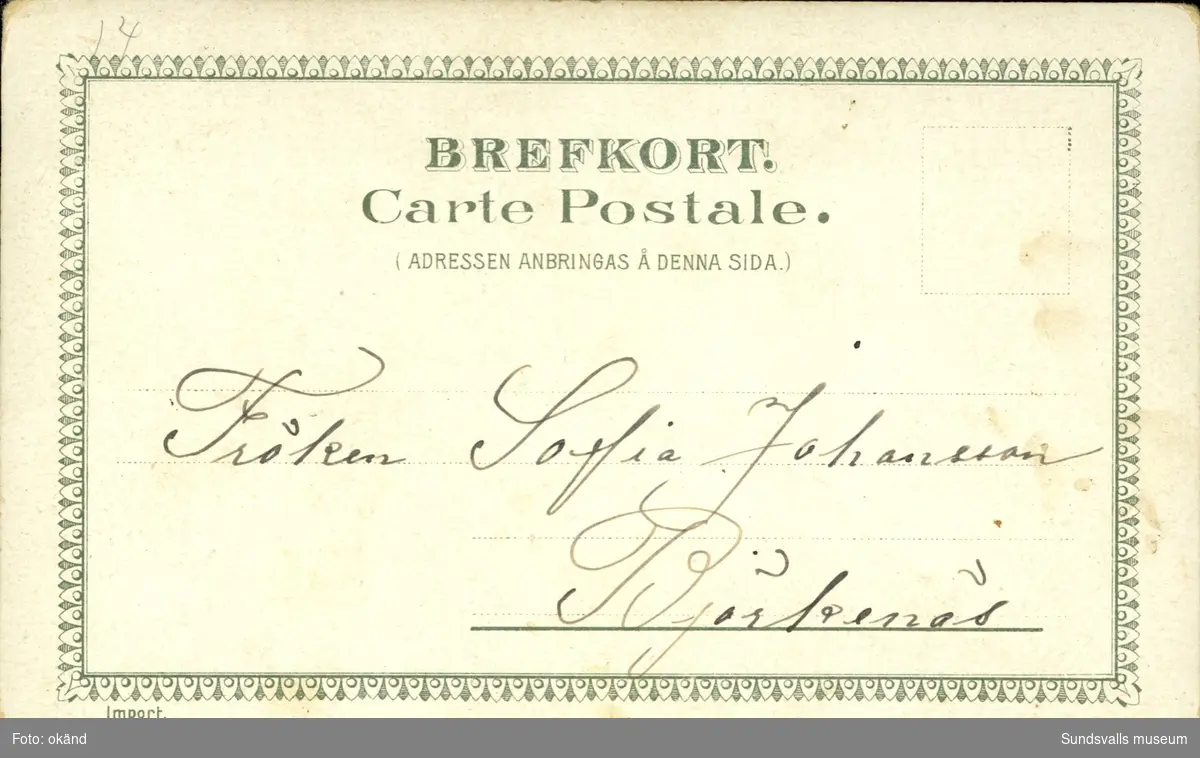 14
BREFKORT.
Carte Postale.
(ADRESSEN ANBRINGAS Å DENNA SIDA.)
Fröken Soffia Johansson
Björkenäs
Import.
Foto: okänd
Sundsvalls museum